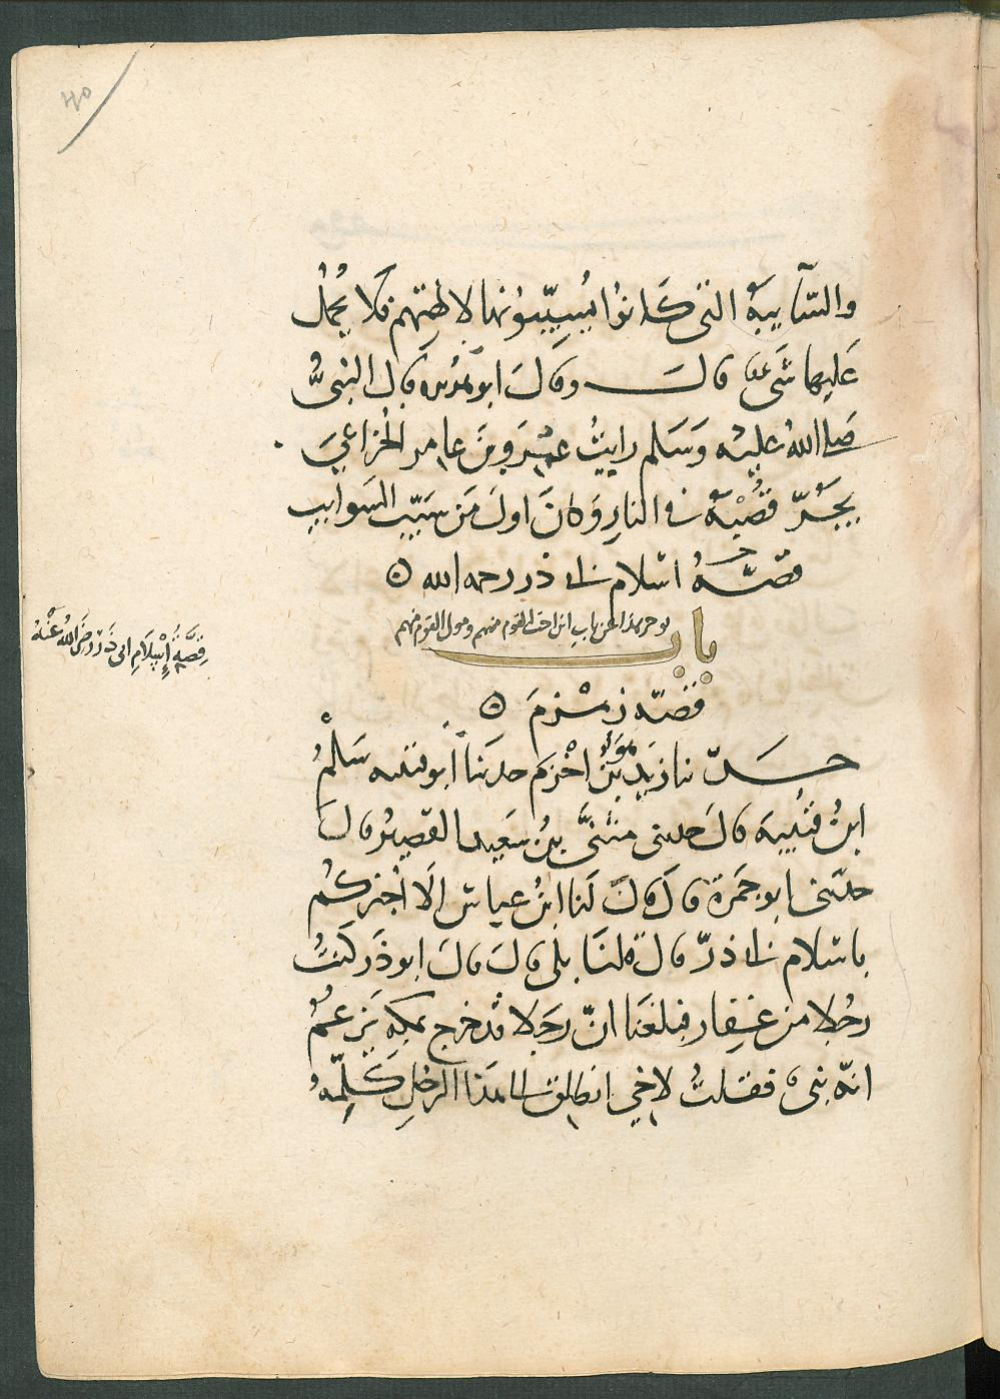 ٤٥
والسّآيبَةُ التى كَانوُا يُسيّبُونها لالهتهم فلا يُحملُ
عَليها شَىء قالَ وقالَ ابو هُريره قال النبىُّ
صَلى اللهُ عليْه وَسَلم رايتُ عَمْرَو بنَ عامر الخُزاعيَ
يجُرّ قُصْبَهُ فى النارِ وَكانَ اولَ مَن سَيّبَ السَوايبِ
قصّةُ اسْلام ابى ذر رحمه الله
باب
يوخر هذا الى باب ابن اخت القوم منهم ومولى القوم منهم
قصّةُ اسْلَامِ ابى ذَرّ رضَى اللهُ عَنْهُ
قصّه زمْزمَ
حَدّثنا زيَد بنُ اخْزَم حدثنا ابو قتيبه سَلْمُ
ابنُ قتُيبه قالَ حدثنى مثنَّى بنُ سَعيد القصيرُ قالَ
حدثنى ابو جَمرة قالَ قالَ لَنا ابنُ عباس الَا اُخبركُم
باسْلام ابى ذرّ قالَ قلنَا بلى قالَ قالَ ابو ذَر كنتُ
رجُلا من غِفار فبلغنَا انّ رجَلا قدْ خرج بمكه يَزعمُ
انّه نبىٌ فقلتُ لاخي انطلق الى هَذا الرجُلِ كَلِّمْهُ